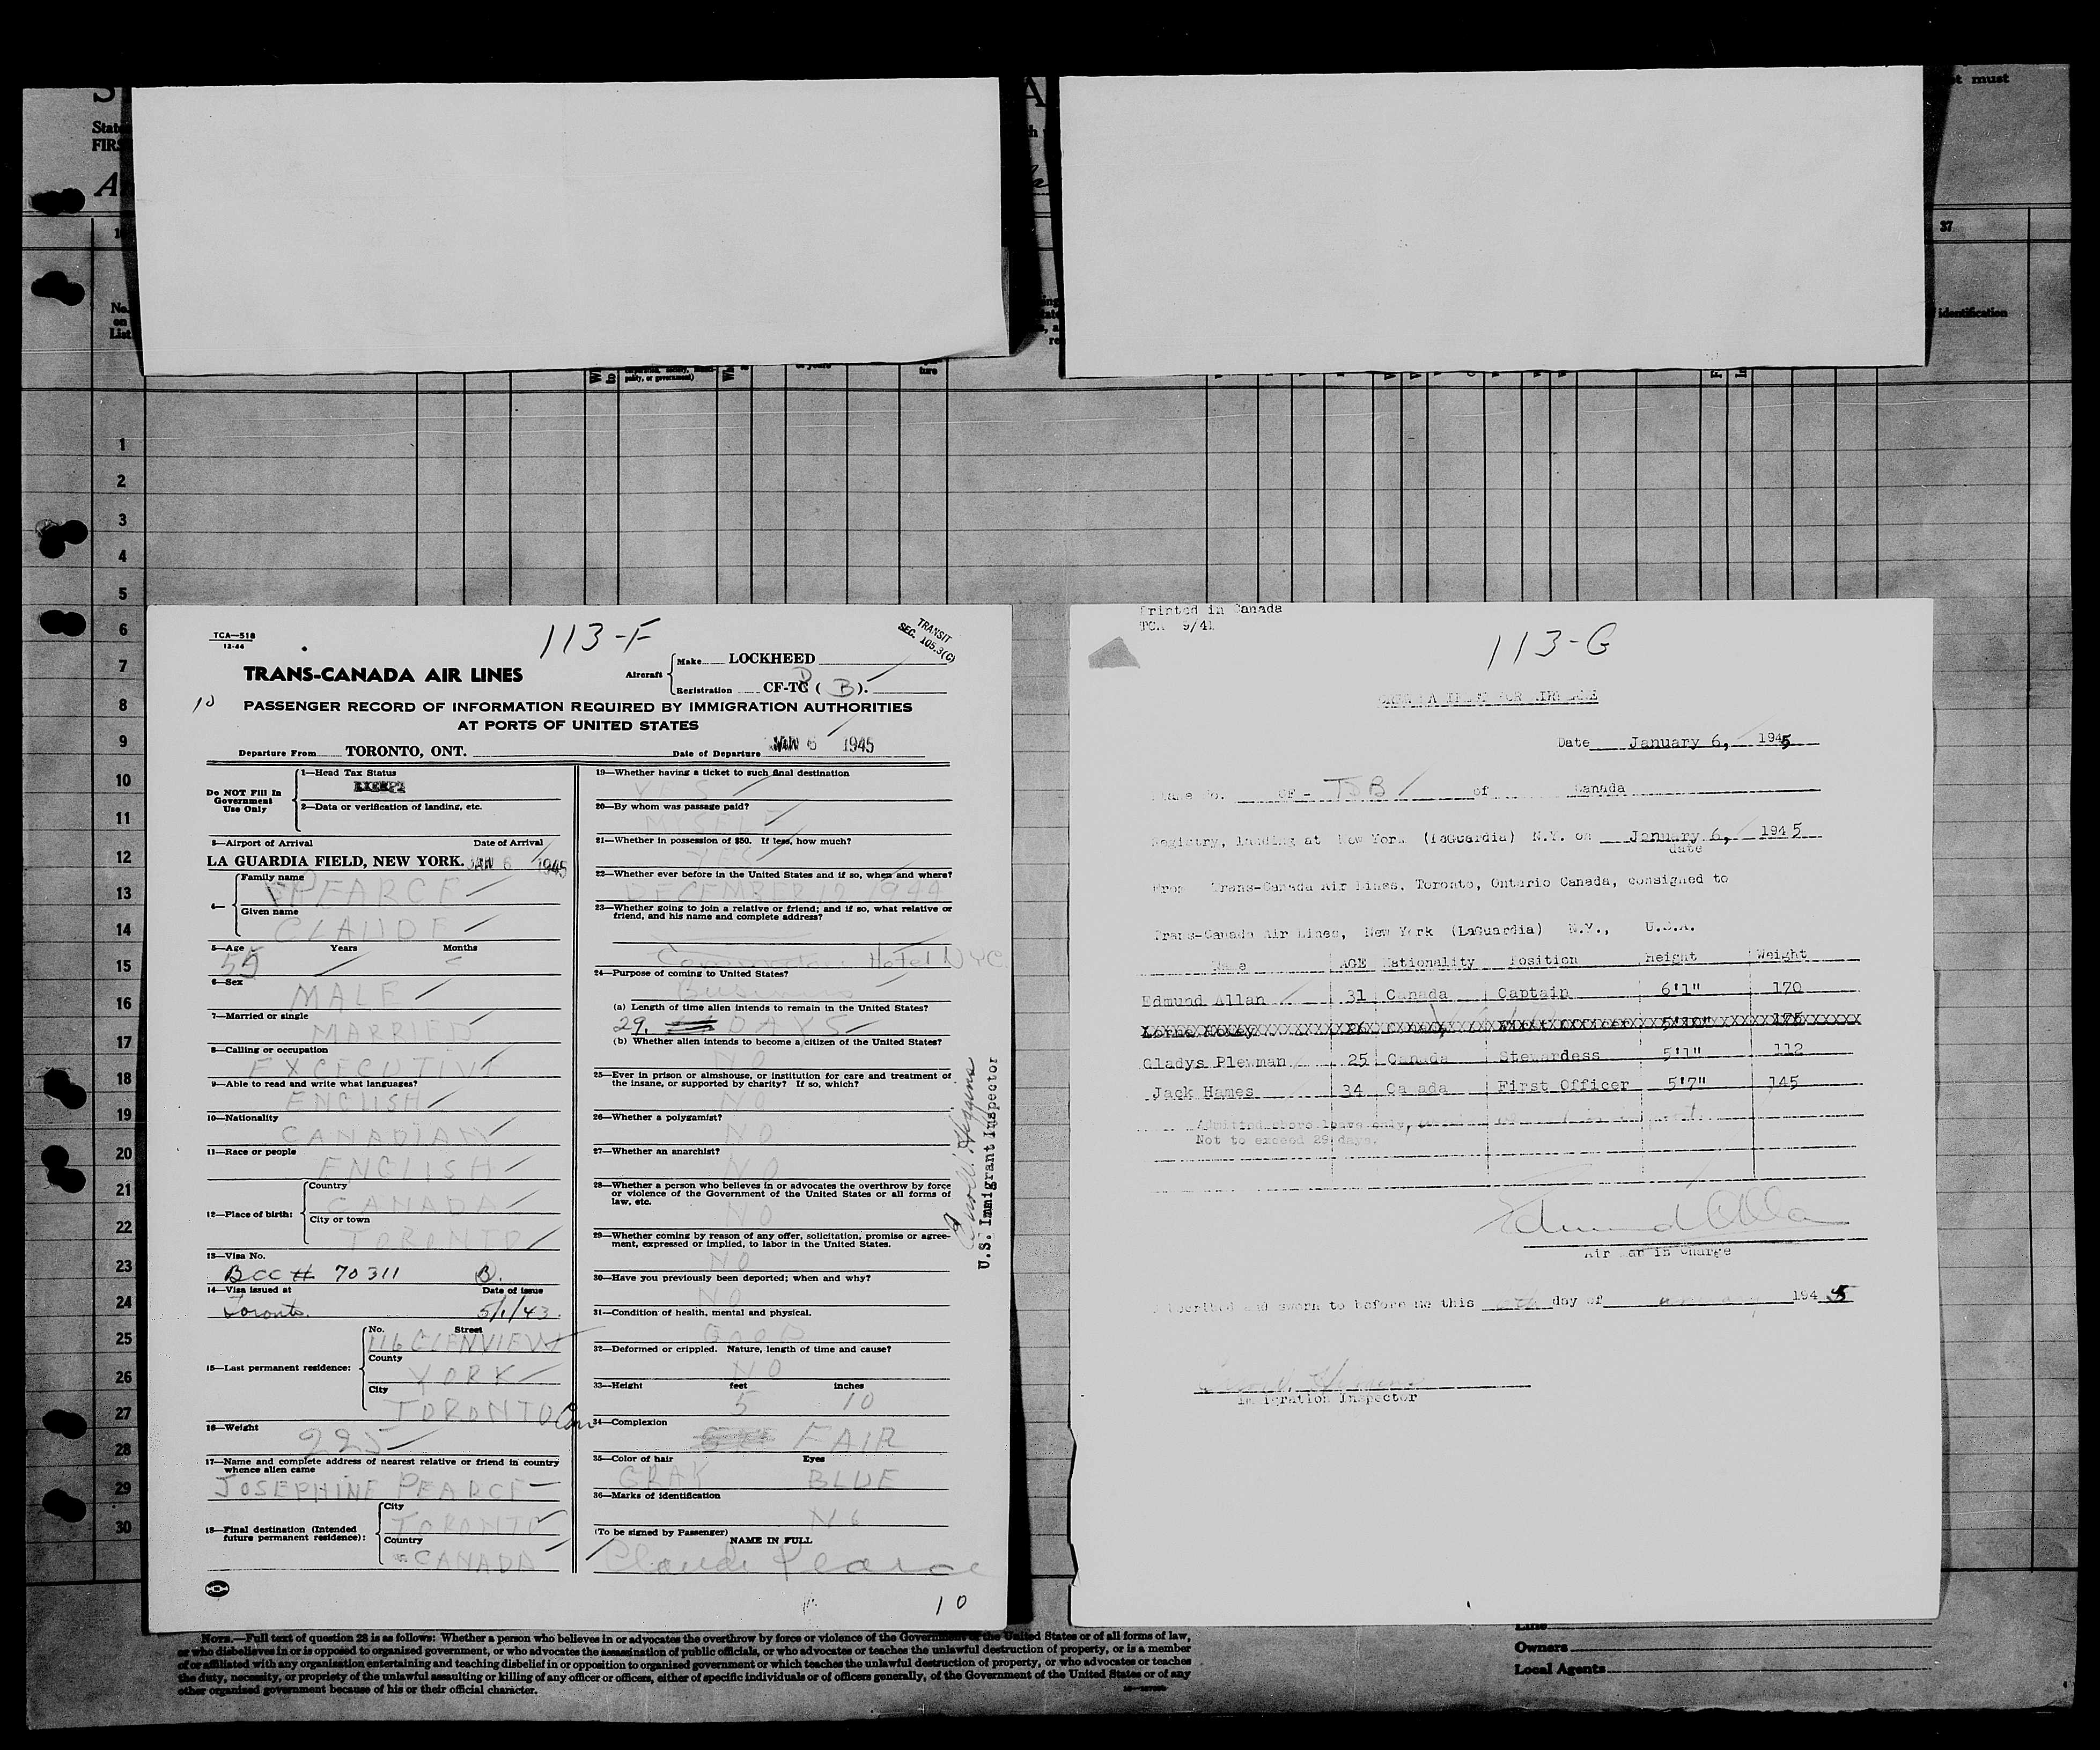 must
State
FIRS
37
No.
on
List
identification
poality, or government)
or years
ture
1
2
3
4
5
6
7
8
9
10
11
12
13
14
15
16
17
18
19
20
21
22
23
24
25
26
27
28
29
30
TCA—518
12-44
113-F
TRANSIT
SEC. 105.3(C)
TRANS-CANADA AIR LINES
Aircraft
Make LOCKHEED
Registration CF-TC ( B ).
10
PASSENGER RECORD OF INFORMATION REQUIRED BY IMMIGRATION AUTHORITIES
AT PORTS OF UNITED STATES
Departure From TORONTO, ONT. Date of Departure JAN 6 1945
Do NOT Fill In
Government
Use Only
1—Head Tax Status
EXEMPT
2—Data or verification of landing, etc.
3—Airport of Arrival Date of Arrival
LA GUARDIA FIELD, NEW YORK. JAN 6 1945
4—
Family name
PEARCE
Given name
CLAUDE
5—Age Years Months
55
6—Sex
MALE
7—Married or single
MARRIED
8—Calling or occupation
EXCECUTIVE
9—Able to read and write what languages?
ENGLISH
10—Nationality
CANADIAN
11—Race or people
ENGLISH
12—Place of birth:
Country
CANADA
City or town
TORONTO
13—Visa No.
BCC # 70311 B.
14—Visa issued at Date of issue
Toronto. 5/1/43.
15—Last permanent residence:
No. Street
116 GLENVIEW
County
YORK
City
TORONTO Can
16—Weight
225
17—Name and complete address of nearest relative or friend in country
whence alien came
JOSEPHINE PEARCE
18—Final destination (Intended
future permanent residence):
City
TORONTO
Country
CANADA
19—Whether having a ticket to such final destination
YES
20—By whom was passage paid?
MYSELF
21—Whether in possession of $50. If less, how much?
YES
22—Whether ever before in the United States and if so, when and where?
DECEMBER 12 1944
23—Whether going to join a relative or friend; and if so, what relative or
friend, and his name and complete address?
Commodore Hotel NYC
24—Purpose of coming to United States?
Business
(a) Length of time alien intends to remain in the United States?
29. DAYS
(b) Whether alien intends to become a citizen of the United States?
NO
25—Ever in prison or almshouse, or institution for care and treatment of
the insane, or supported by charity? If so, which?
NO
26—Whether a polygamist?
NO
27—Whether an anarchist?
NO
28—Whether a person who believes in or advocates the overthrow by force
or violence of the Government of the United States or all forms of
law, etc.
NO
29—Whether coming by reason of any offer, solicitation, promise or agree-
ment, expressed or implied, to labor in the United States.
NO
30—Have you previously been deported; when and why?
NO
31—Condition of health, mental and physical.
GOOD
32—Deformed or crippled. Nature, length of time and cause?
NO
33—Height feet inches
5 10
34—Complexion
FAIR
35—Color of hair Eyes
GRAY BLUE
36—Marks of identification
NO
(To be signed by Passenger)
NAME IN FULL
Claude Pearce
10
U.S. Immigrant Inspector
Printed in Canada
TCA 9/41
113-G
Date January 6, 1945
Plane No. CF - TDB of Canada
Registry, landing at New York (LaGuardia) N.Y. on January 6, 1945
date
From Trans-Canada Air Lines, Toronto, Ontario Canada, consigned to
Trans-Canada Air Lines, New York (LaGuardia) N.Y., U.S.A.
Name AGE Nationality Position Height Weight
Edmund Allan 31 Canada Captain 6'1" 170
5'10" 175
Gladys Plewman 25 Canada Stewardess 5'1" 112
Jack Hames 34 Canada First Officer 5'7" 145
Admitted shore leave only,
Not to exceed 29 days.
Edmund Allan
Air Man in Charge
Subscribed and sworn to before me this day of 1945
Immigration Inspector
NOTE.—Full text of question 28 is as follows: Whether a person who believes in or advocates the overthrow by force or violence of the Government of the United States or of all forms of law,
or who disbelieves in or is opposed to organized government, or who advocates the assassination of public officials, or who advocates or teaches the unlawful destruction of property, or is a member
of or affiliated with any organization entertaining and teaching disbelief in or opposition to organized government or which teaches the unlawful destruction of property, or who advocates or teaches
the duty, necessity, or propriety of the unlawful assaulting or killing of any officer or officers, either of specific individuals or of officers generally, of the Government of the United States or of any
other organized government because of his or their official character.
Line
Owners
Local Agents